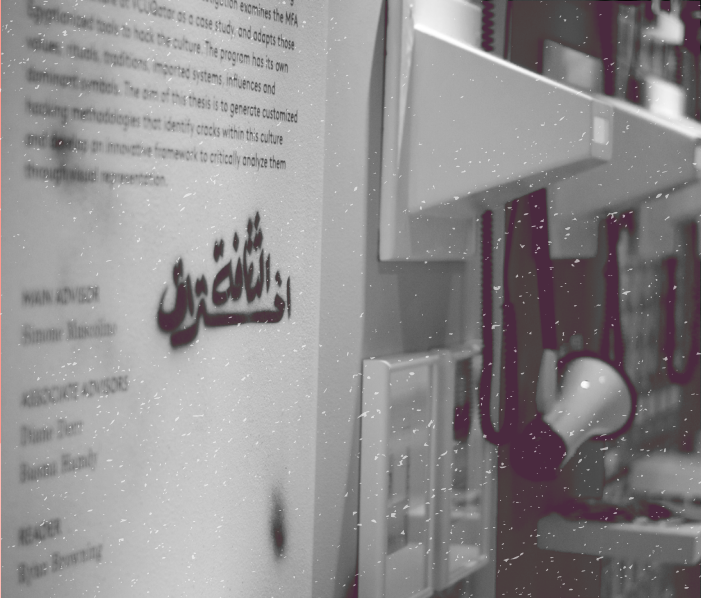 examines the MFA
at VCUQatar as a case study, and adapts those
tools to hack the culture. The program has its own
values, rituals, traditions, imported systems, influences and
dominant symbols. The aim of this thesis is to generate customized
hacking methodologies that identify cracks within this culture
and an innovative framework to critically analyze them
through visual representation.
الثقافة
MAIN ADVISOR
Simone Muscolino
ASSOCIATE ADVISORS
Diane Derr
Basma Hamdy
READER
Ryan Browning